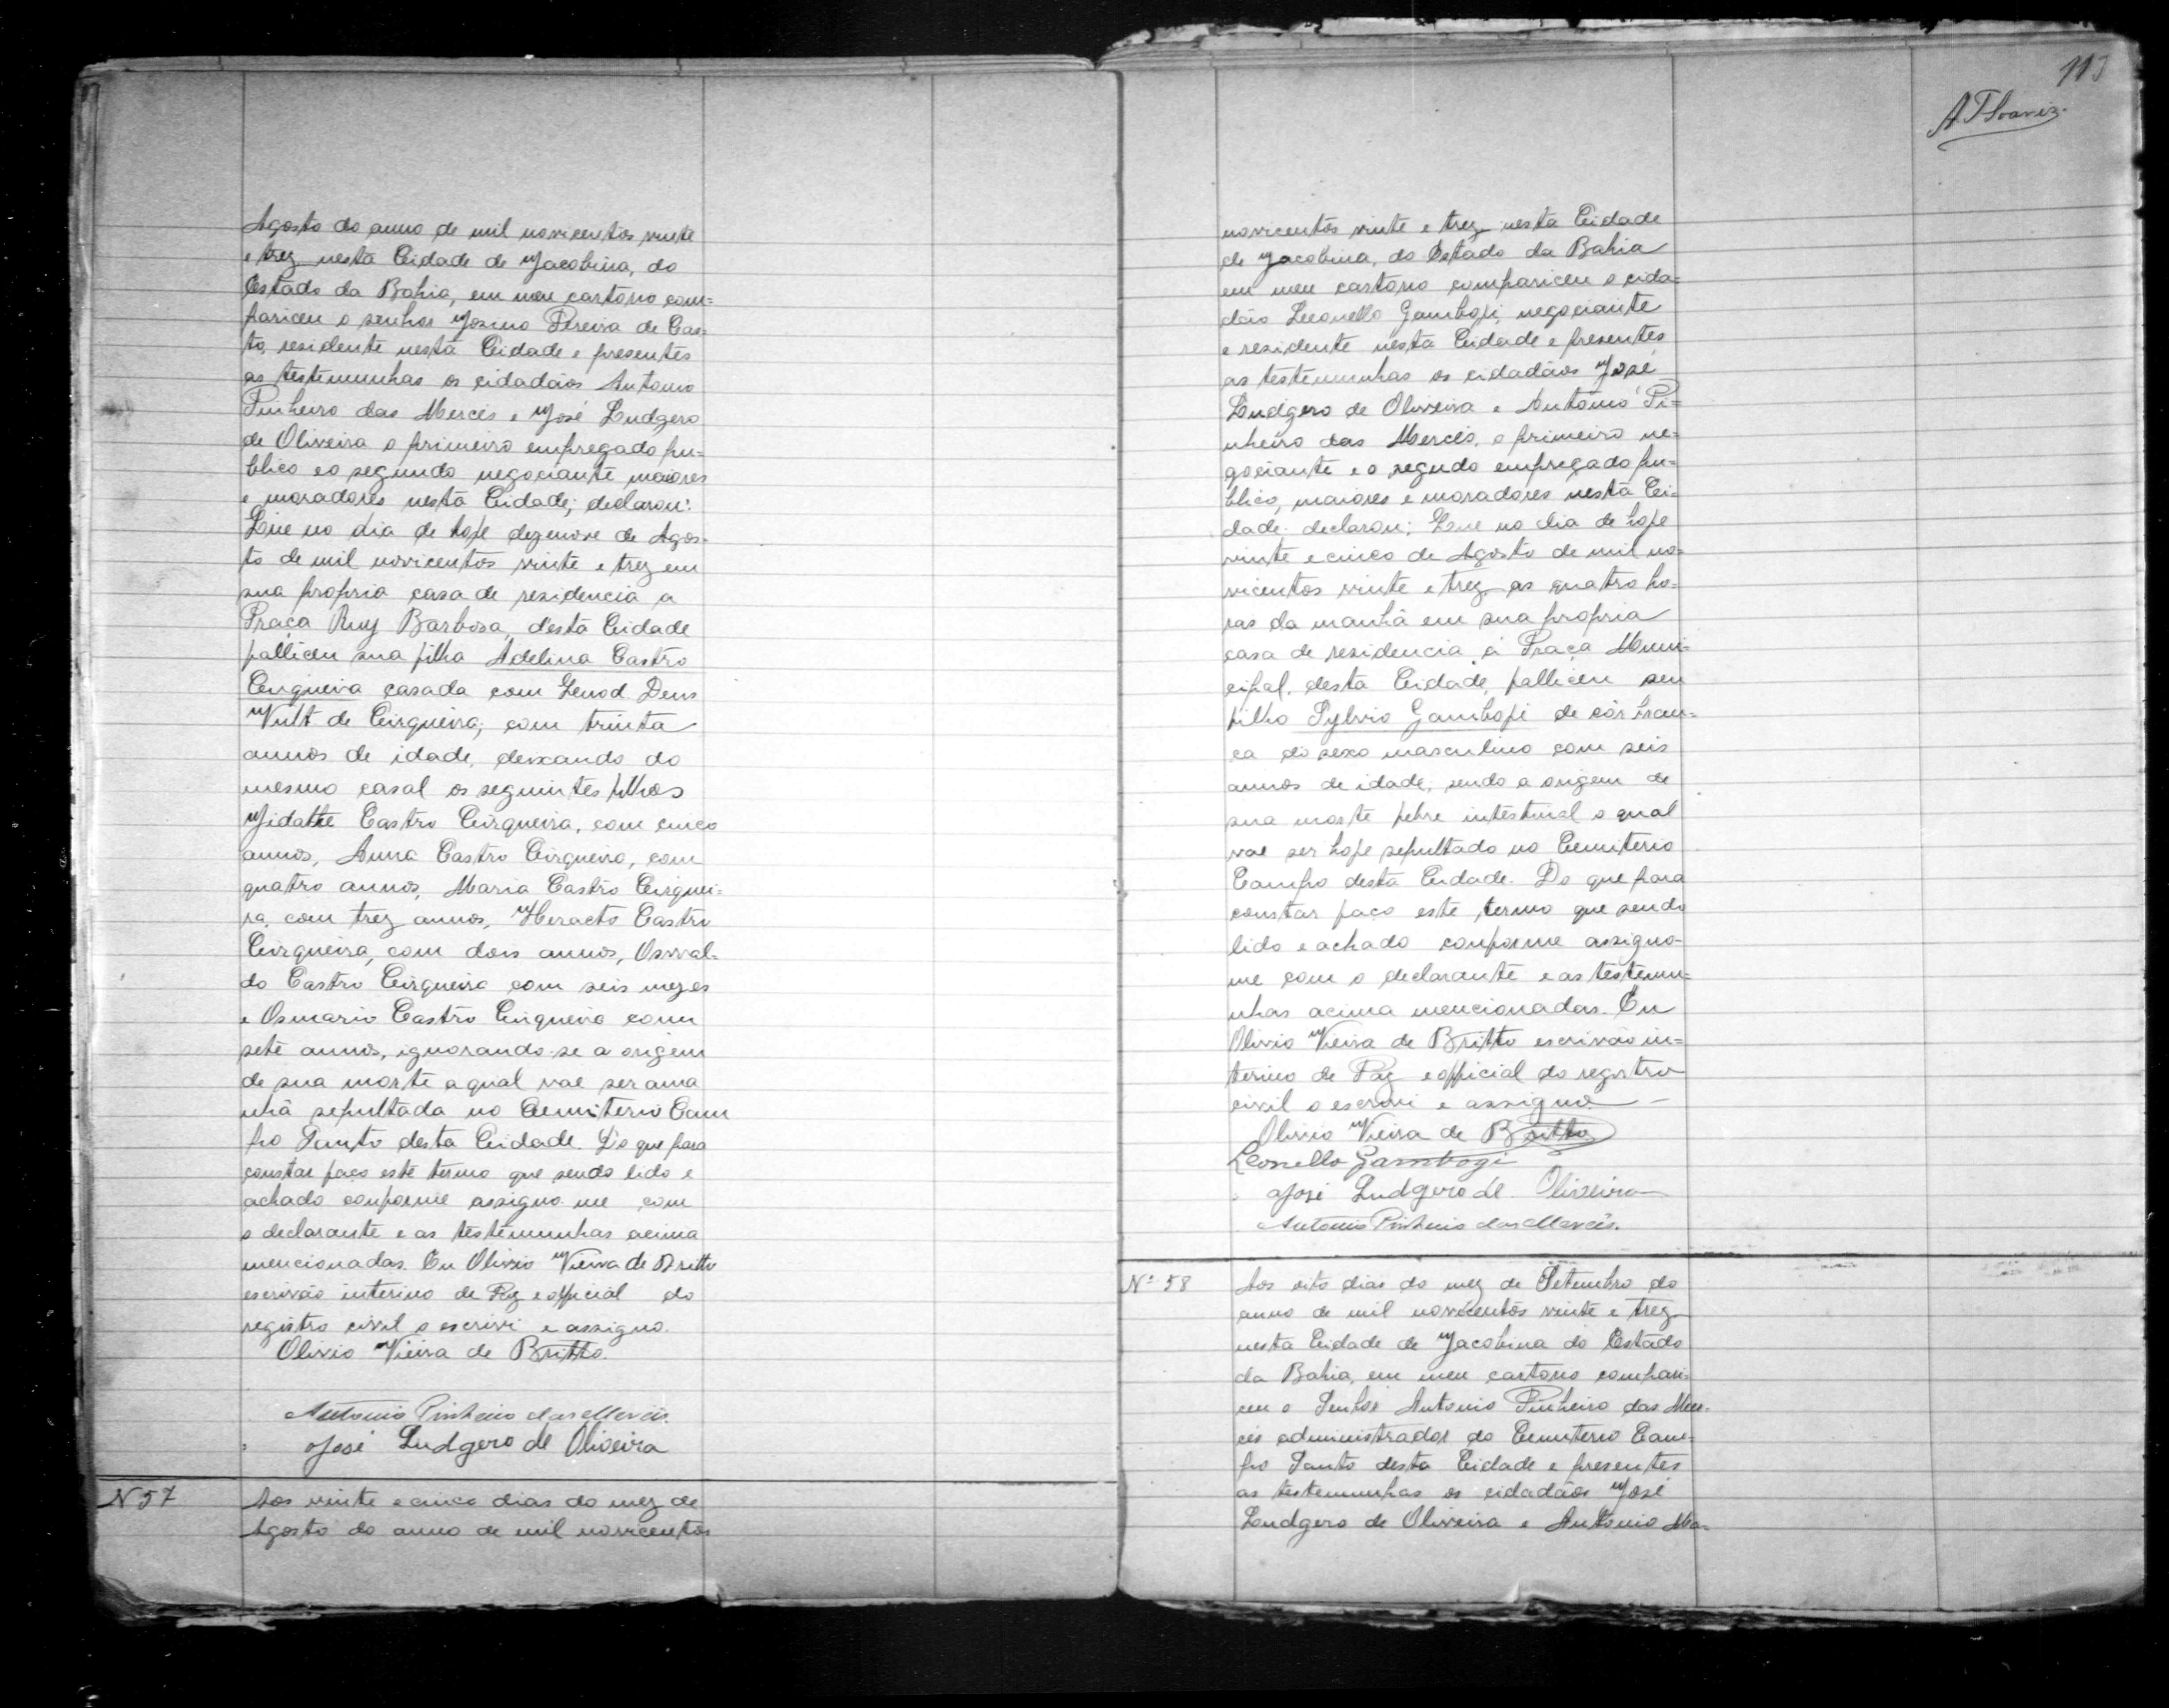 Agosto do anno de mil novicentos vinte
e trez nesta Cidade de Jacobina, do
Estado da Bahia, em meu cartorio com=
pariceu o senhor Josino Pereira de Cas=
to, residente nesta Cidade e presentes
as testemunhas os cidadãos Antonio
Pinheiro das Mercês e José Ludgero
de Oliveira o primeiro empregado pu=
blico e o segundo negociante maiores
e moradores nesta Cidade; declarou:
Que no dia de hoje dezenove de Agos-
to de mil novicentos vinte e trez em
sua propria casa de residencia a
Praça Ruy Barbosa, desta Cidade
falliceu sua filha Adelina Castro
Cirqueira casada com Genod Deus
Vult de Cirqueira; com trinta
annos de idade, deixando do
mesmo casal os seguintes filhos
Castro Cirqueira, com cinco
annos, Anna Castro Cirqueira, com
quatro annos, Maria Castro Cirquei=
ra, com trez annos, Castro
Cirqueira, com dois annos, Osvval-
do Castro Cirqueira com seis mezes
e Osmario Castro Cirqueira com
sete annos, ignorando-se a origem
de sua morte a qual vae ser ama
nhã sepultada no Cemiterio Cam
po Santo desta Cidade. Do que para
constar faço este termo que sendo lido e
achado conforme assigno-me com
o declarante e as testemunhas acima
mencionadas. Eu Olivio Vieira de Britto
escrivão interino de Paz e official do
registro civil o escrivi e assigno.
Olivio Vieira de Britto.
Antonio Pinheiro das Mercês.
José Ludgero de Oliveira
N 57
Aos vinte e cinco dias do mez de
Agosto do anno de mil novicentos
113
novicentos vinte e trez nesta Cidade
de Jacobina, do Estado da Bahia
em meu cartorio compariceu o cida=
dão Leonello Gambogi, negociante
e residente nesta Cidade e presentes
as testemunhas os cidadãos José
Ludgero de Oliveira e Antonio Pi=
nheiro das Mercês, o primeiro ne=
gociante e o segudo empregado pu=
blico, maiores e moradores nesta Ci=
dade: declarou: Que no dia de hoje
vinte e cinco de Agosto de mil no=
vicentos vinte e trez as quatro ho=
ras da manhã em sua propria
casa de residencia á Praça Muni=
cipal, desta Cidade, falliceu seu
filho Sylvio Gambogi de côr bran=
ca do sexo masculino com seis
annos de idade, sendo a origem de
sua morte febre intestinal o qual
vae ser hoje sepultado no Cemiterio
Campo desta Cidade. Do que para
constar faço este termo que sendo
lido e achado conforme assigno-
me com o declarante e as testemu=
nhas acima mencionadas. Eu
Olivio Vieira de Britto escrivão in=
terino de Paz e official do registro
civil o escrivi e assigno.
Olivio Vieira de Britto
Leonello Gambogi
José Ludgero de Oliveira
Antonio Pinheiro das Mercês.
Nº 58
Aos oito dias do mez de Setembro do
anno de mil novicentos vinte e trez
nesta Cidade de Jacobina do Estado
da Bahia, em meu cartorio compari=
ceu o Senhor Antonio Pinheiro das Mer=
cês administrador do Cemiterio Cam=
po Santo desta Cidade e presentes
as testemunhas os cidadãos José
Ludgero de Oliveira e Antonio Ma=